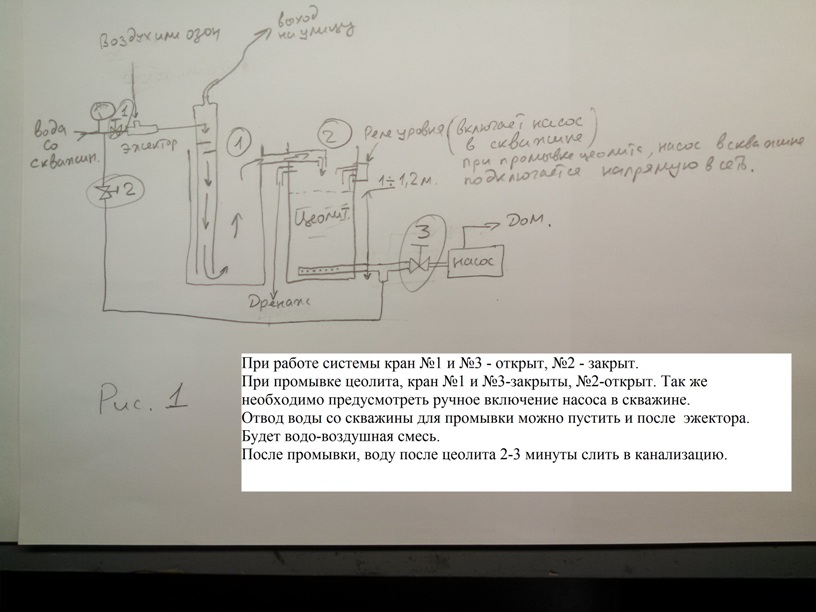 Воздух или озон
выход
на улицу
вода
со
скважин.
1
эжектор
2
1
2
Реле уровня (включает насос
в скважине)
при промывке цеолита, насос в скважине
подключается напрямую в сеть.
1÷1,2 м.
Цеолит.
3
Дом.
насос
Дренаж
Рис. 1
При работе системы кран №1 и №3 - открыт, №2 - закрыт.
При промывке цеолита, кран №1 и №3-закрыты, №2-открыт. Так же
необходимо предусмотреть ручное включение насоса в скважине.
Отвод воды со скважины для промывки можно пустить и после эжектора.
Будет водо-воздушная смесь.
После промывки, воду после цеолита 2-3 минуты слить в канализацию.